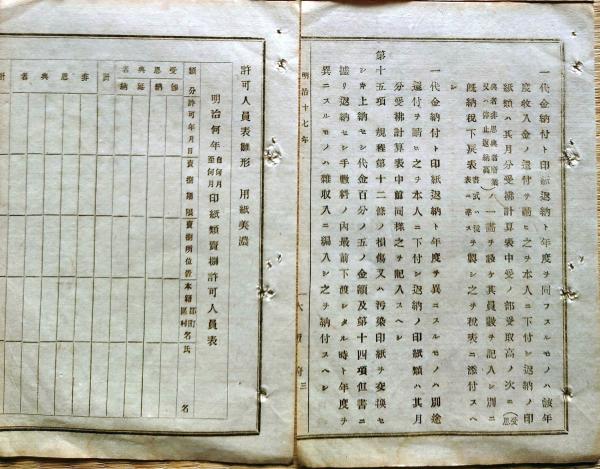 一代金納付ト印紙返納ト年度ヲ同フスルモノハ該年
度收入金ノ還付ヲ請ヒ之ヲ本人ニ下付シ返納ノ印
紙類ハ其月分受拂計算表中受ノ部受取高ノ次ニ(受恩
典者非恩典者廢業又ハ停止返納高)ノ一諸ヲ設ケ其員數ヲ記入シ別ニ
既納稅下戾表書式ハ後表ニ準スヲ製シ之ヲ稅表ニ添付スヘ
シ
一代金納付ト印紙返納ト年度ヲ異ニスルモノハ別途
還付ヲ請ヒ之ヲ本人ニ下付シ返納ノ印紙類ハ其月
分受拂計算表中前同樣之ヲ記入スヘシ
第十五項 規程第十二條ノ損傷又ハ汚染印紙ヲ交換セ
シカ上納セシ代金百分ノ五ノ金額及第十四項但書ニ
據リ返納セシ手數料ノ內最前下渡シタル時ト年度ヲ
異ニスルモノハ雜收入ニ編入シ之ヲ納付スヘシ
明治十七年
大府三
許可人員表雛形 用紙美濃
明治何年自何月至何月印紙類賣捌許可人員表
類分
許可年月日
賣捌期限
賣捌所位置
本籍
郡區
町村
氏名
受恩典者
卽納
延納
計
非恩典者
計